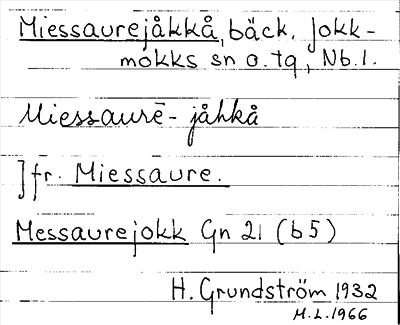 Miessaurejåkkå, bäck, Jokk-
mokks sn o. tg, Nb.l.
Miessaurē-jåhkå
] fr. Miessaure.
Messaurejokk Gn 21 (b5)
H. Grundström 1932
M.L. 1966